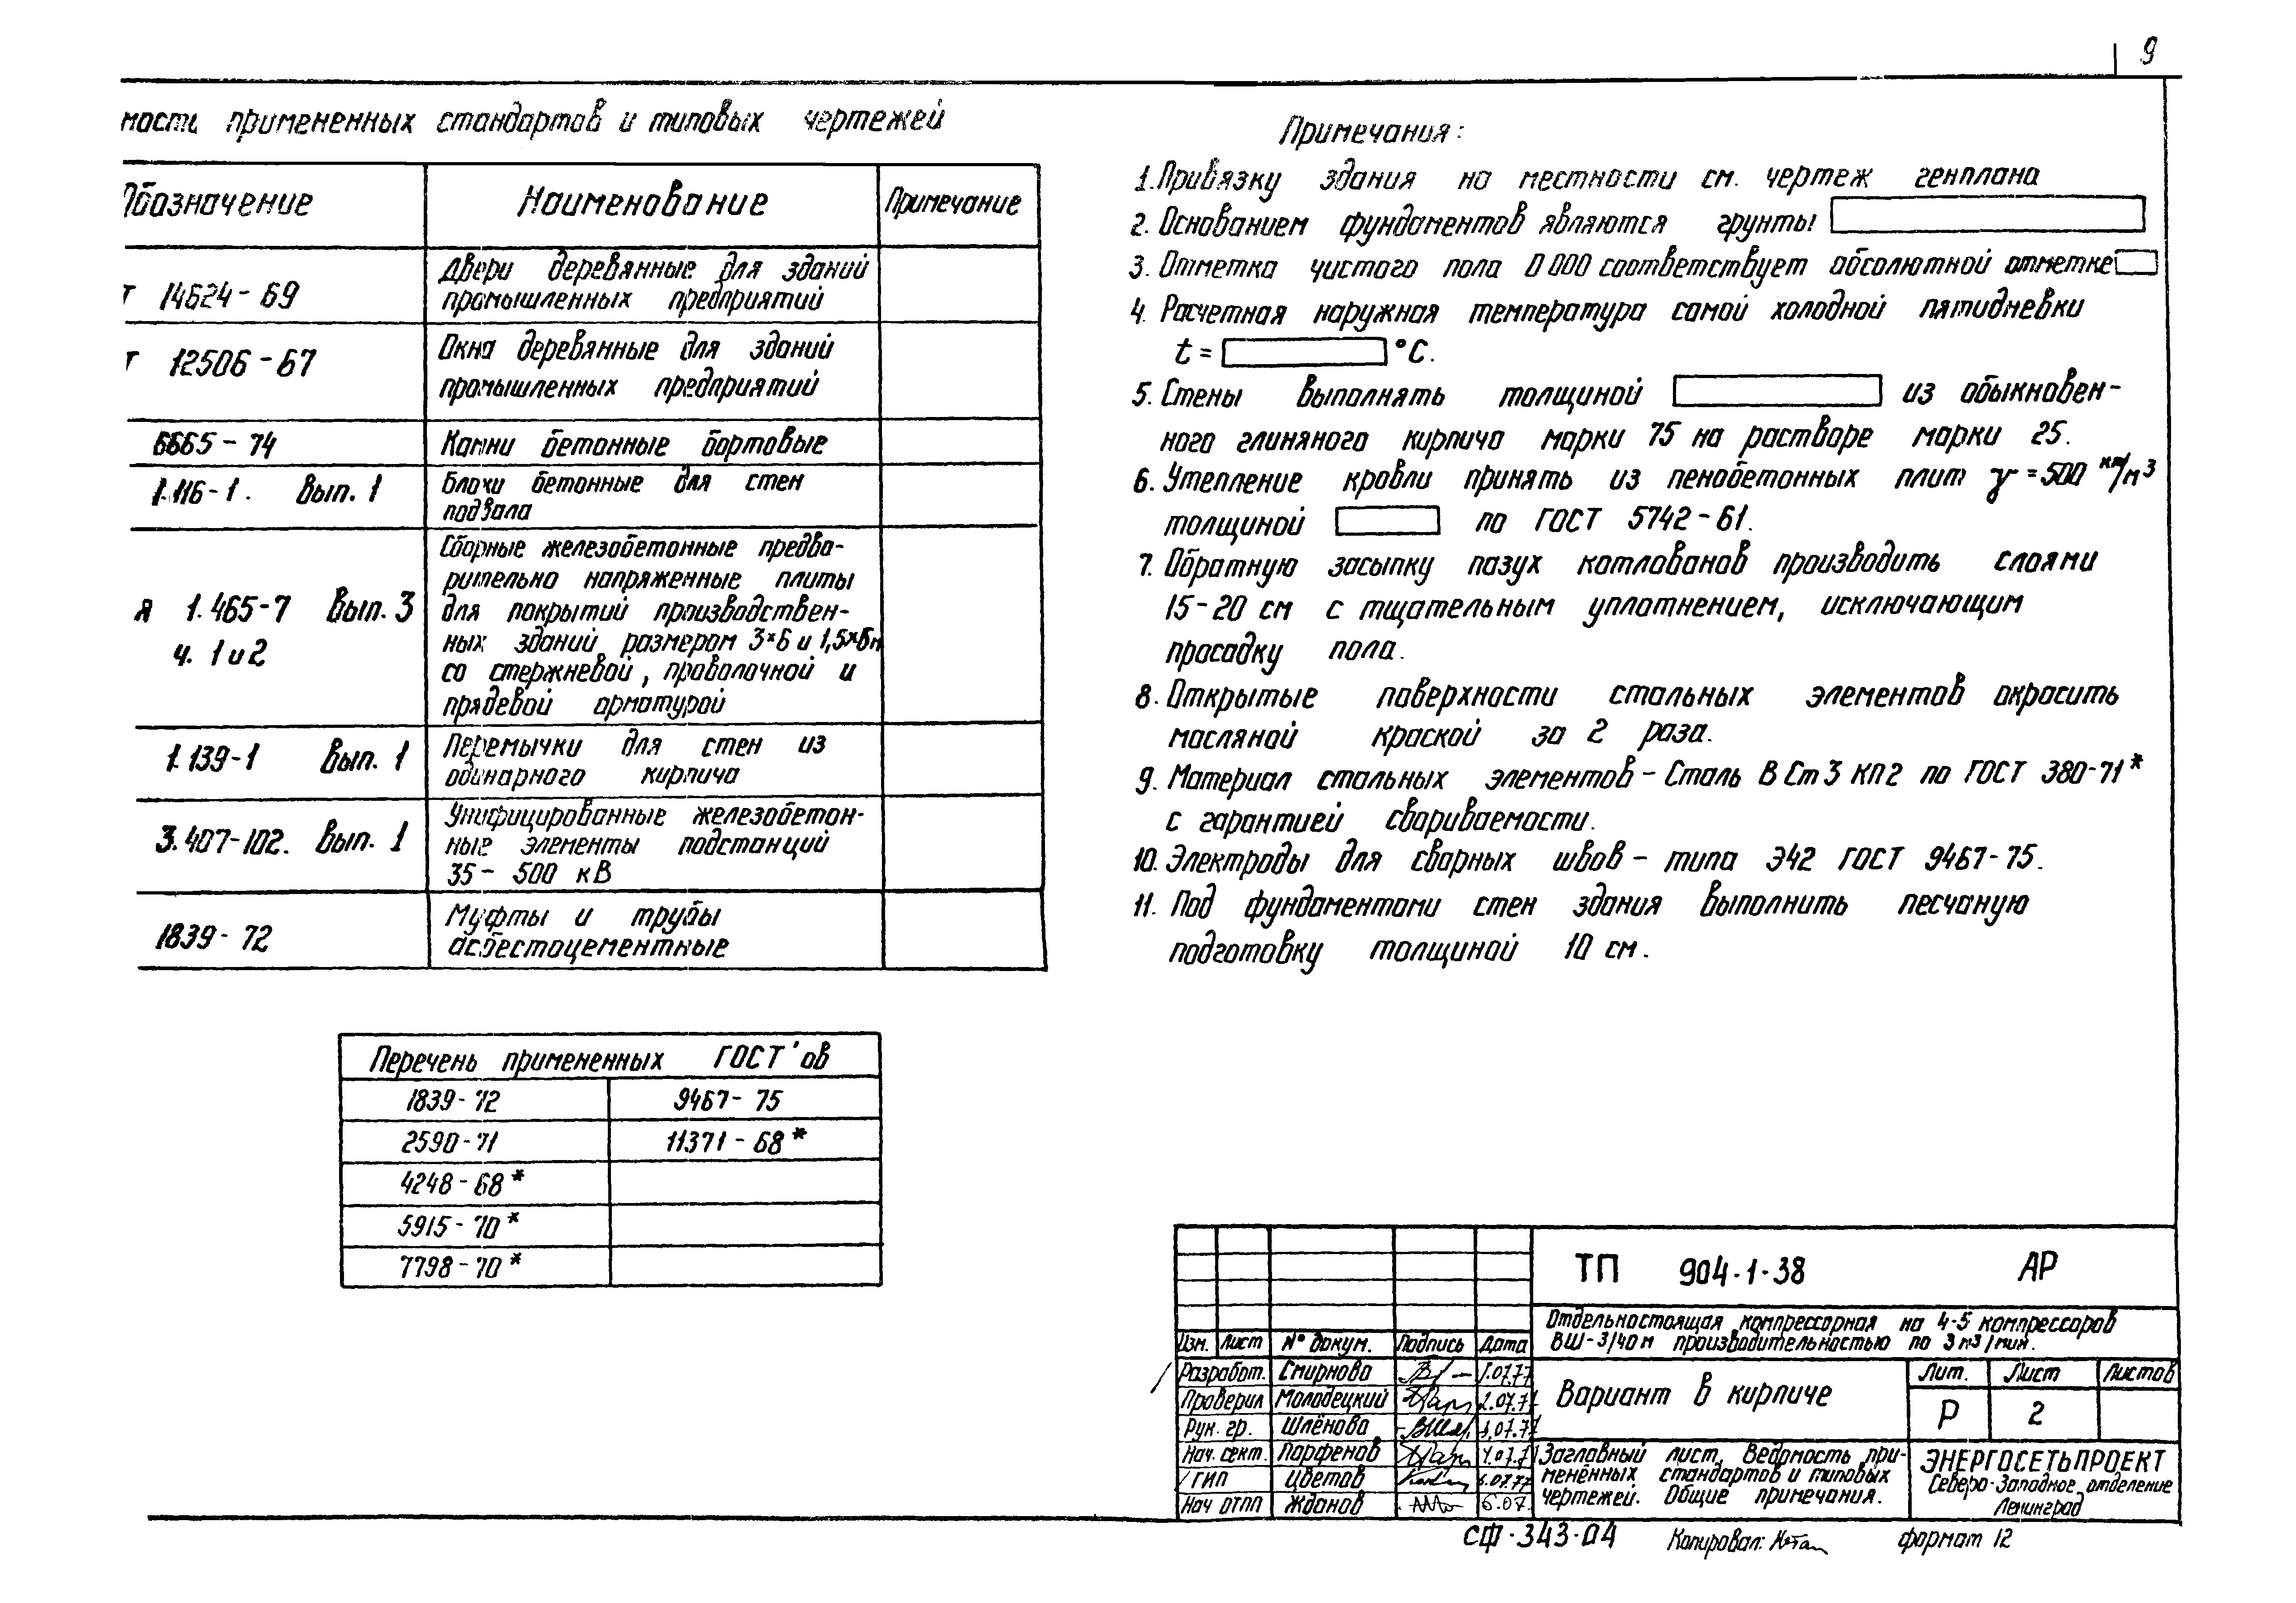 9
ности примененных стандартов и типовых чертежей
Обозначение Наименование Примечание
Т 14624-69 Двери деревянные для зданий
промышленных предприятий
Т 12506-67 Окна деревянные для зданий
промышленных предприятий
6665-74 Камни бетонные бортовые
1.116-1. Вып. 1 Блоки бетонные для стен
подвала
я 1.465-7 Вып. 3
ч. 1 и 2
Сборные железобетонные предва-
рительно напряженные плиты
для покрытий производствен-
ных зданий размером 3×6 и 1,5×6м
со стержневой, проволочной и
прядевой арматурой
1.139-1 Вып. 1 Перемычки для стен из
одинарного кирпича
3.407-102. Вып. 1 Унифицированные железобетон-
ные элементы подстанций
35-500 кВ
1839-72 Муфты и трубы
асбестоцементные
Перечень примененных ГОСТ'ов
1839-72 9467-75
2590-71 11371-68*
4248-68*
5915-70*
7798-70*
Примечания:
1. Привязку здания на местности см. чертеж генплана
2. Основанием фундаментов являются грунты
3. Отметка чистого пола 0 000 соответствует абсолютной отметке
4. Расчетная наружная температура самой холодной пятидневки
t = °C.
5. Стены выполнять толщиной из обыкновен-
ного глиняного кирпича марки 75 на растворе марки 25.
6. Утепление кровли принять из пенобетонных плит γ=500 кг/м³
толщиной по ГОСТ 5742-61.
7. Обратную засыпку пазух котлованов производить слоями
15-20 см с тщательным уплотнением, исключающим
просадку пола.
8. Открытые поверхности стальных элементов окрасить
масляной краской за 2 раза.
9. Материал стальных элементов - Сталь В Ст 3 КП2 по ГОСТ 380-71*
с гарантией свариваемости.
10. Электроды для сварных швов - типа Э42 ГОСТ 9467-75.
11. Под фундаментами стен здания выполнить песчаную
подготовку толщиной 10 см.
ТП 904-1-38 АР
Отдельностоящая компрессорная на 4-5 компрессоров
ВШ-3/40м производительностью по 3 м³/мин.
Изм. Лист № докум. Подпись Дата
Разработ. Смирнова
Проверил Молодецкий
Рук. гр. Шлёнова
Нач. сект. Парфенов
ГИП Цветов
Нач ОТПП Жданов
Вариант в кирпиче
Лит. Лист Листов
Р 2
Заглавный лист, Ведомость при-
менённых стандартов и типовых
чертежей. Общие примечания.
ЭНЕРГОСЕТЬПРОЕКТ
Северо-Западное отделение
Ленинград
СФ-343-04 Копировал: формат 12